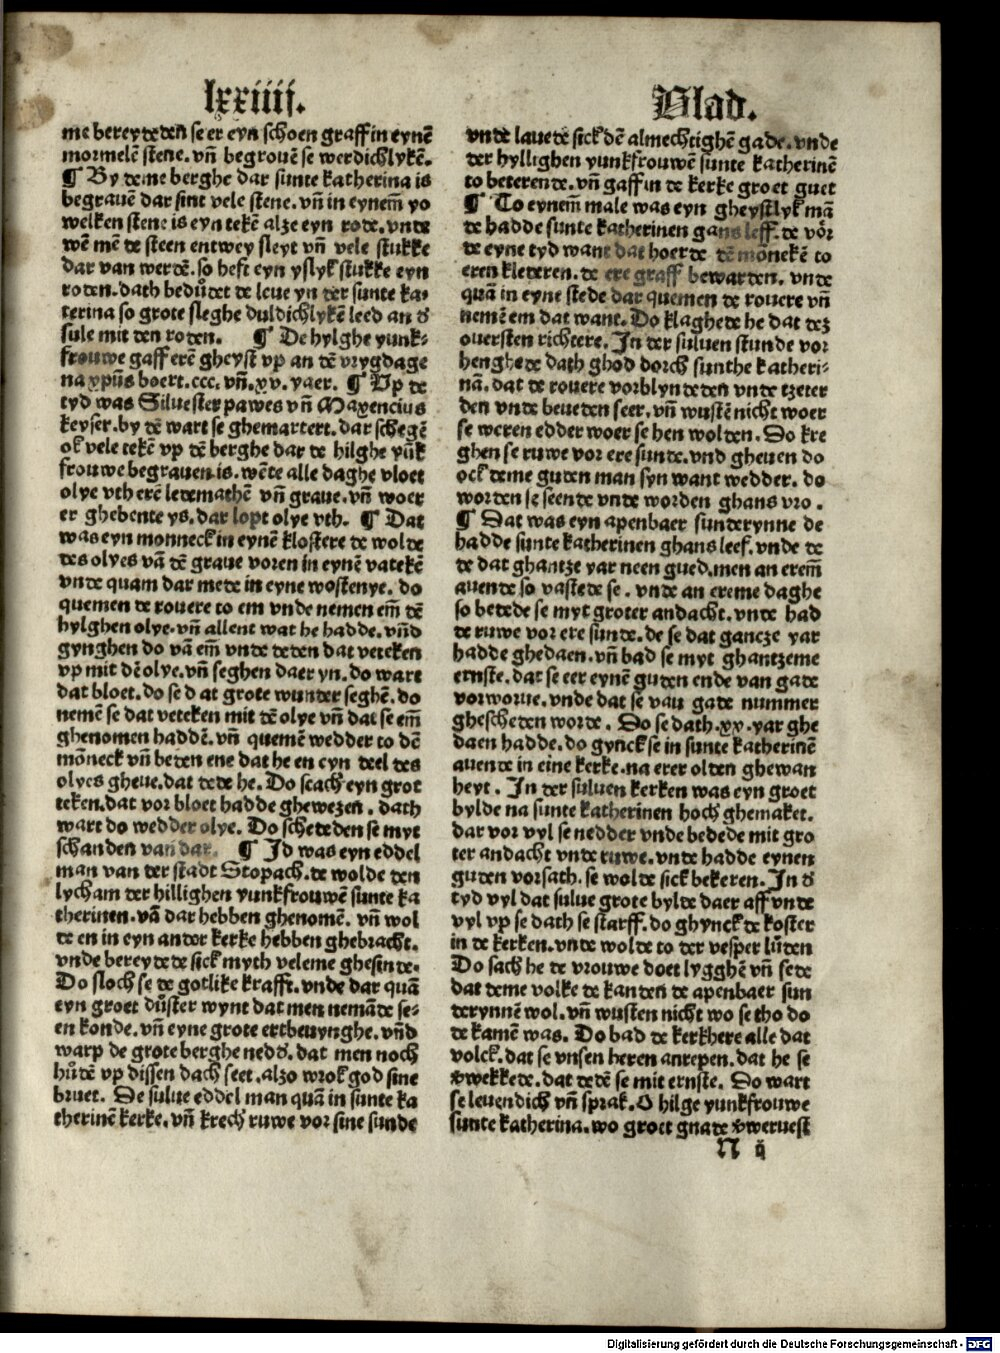 lxxiiij. Blad.
me bereydedeñ se er eyn schoen graff in eynē
mormelē stene. vñ begrouē se werdichlykē.
¶ By deme berghe dar sunte katherina is
begrauē dar sint vele stene. vñ in eynem̄ yo
welken stene is eyn tekē alze eyn rode. vnde
wē mē de steen entwey sleyt vñ vele stukke
dar van werdē. so heft eyn yslyk stukke eyn
roden. dath bedůdet de leue yn der sunte ka-
terina so grote sleghe duldichlykē leed an đ
sule mit den roden. ¶ De hylghe yunk-
frouwe gaff erē gheyst vp an dē vrygdage
na xpūs boert. ccc. vñ. xv. yaer. ¶ Up de
tyd was Siluester pawes vñ Maxencius
keyser. by dē wart se ghemartert. dar schegē
ok vele tekē vp dē berghe dar de hilghe yūk
frouwe begrauen is. wēte alle daghe vloet
olye vth erē ledemathē vñ graue. vñ woer
er ghebente ys. dar lopt olye vth. ¶ Dat
was eyn monneck in eynē klostere de wolde
des olyes vā dē graue voren in eynē vatekē
vnde quam dar mede in eyne wostenye. do
quemen de rouere to em vnde nemen em̄ dē
hylghen olye. vñ allent wat he hadde. vñd
gynghen do vā em̄ vnde deden dat veteken
vp mit dē olye. vñ seghen daer yn. do wart
dat bloet. do se d at grote wunder seghē. do
nemē se dat veteken mit dē olye vñ dat se em̄
ghenomen haddē. vñ quemē wedder to dē
mōneck vñ beden ene dat he en eyn deel des
olyes gheue. dat dede he. Do scach eyn grot
teken. dat vor bloet hadde ghewezen. dath
wart do wedder olye. Do schededen se myt
schanden van dar. ¶ Jd was eyn eddel
man van der stadt Stopach. de wolde den
lycham der hillighen yunkfrouwē sunte ka
therinen. vā dar hebben ghenomē. vñ wol
de en in eyn ander kerke hebben ghebracht.
vnde bereydede sick myth veleme ghesinde.
Do sloch se de gotlike krafft. vnde dar quā
eyn groet důster wynt dat men nemāde se-
en konde. vñ eyne grote ertbeuynghe. vñd
warp de grote berghe nedđ. dat men noch
hůdē vp dissen dach seet. alzo wrok god sine
bruet. De sulue eddel man quā in sunte ka
therinē kerke. vñ krech ruwe vor sine sunde
vnde lauede sick dē almechtighē gade. vnde
der hyllighen yunkfrouwē sunte katherinē
to beterende. vñ gaff in de kerke groet guet
¶ To eynem̄ male was eyn gheystlyk mā
de hadde sunte katherinen gans leff. de vōr
de eyne tyd want dat hoerde dē mōnekē to
eren klederen. de ere graff bewarden. vnde
quā in eyne stede dar quemen de rouere vñ
nemē em dat want. Do klaghede he dat dez
ouersten richtere. Jn der suluen stunde vor
henghede dath ghod dorch sunthe katheri-
nā. dat de rouere vorblyndeden vnde tzeter
den vnde beueden seer. vñ wustē nicht woer
se weren edder woer se hen wolden. Do kre
ghen se ruwe vor ere sunde. vnd gheuen do
ock deme guden man syn want wedder. do
worden se seende vnde worden ghans vro.
¶ Dat was eyn apenbaer sunderynne de
hadde sunte katherinen ghans leef. vnde de
de dat ghantze yar neen gued. men an erem̄
auende so vastede se. vnde an ereme daghe
so bedede se myt groter andacht. vnde had
de ruwe vor ere sunde. de se dat gancze yar
hadde ghedaen. vñ bad se myt ghantzeme
ernste. dat se eer eynē guden ende van gade
vorworue. vnde dat se van gade nummer
ghescheden worde. Do se dath. xv. yar ghe
daen hadde. do gynck se in sunte katherinē
auende in eine kerke. na erer olden ghewan
heyt. Jn der suluen kerken was eyn groet
bylde na sunte katherinen hoch ghemaket.
dar vor vyl se nedder vnde bedede mit gro
ter andacht vnde ruwe. vnde hadde eynen
guden vorsath. se wolde sick bekeren. Jn đ
tyd vyl dat sulue grote bylde daer aff vnde
vyl vp se dath se starff. do ghynck de koster
in de kerken. vnde wolde to der vesper lůden
Do sach he de vrouwe doet lygghē vñ sede
dat deme volke de kanden de apenbaer sun
derynnē wol. vñ wusten nicht wo se tho do
de kamē was. Do bad de kerkhere alle dat
volck. dat se vnsen heren anrepen. dat he se
vwekkede. dat dedē se mit ernste. Do wart
se leuendich vñ sprak. O hilge yunkfrouwe
sunte katherina. wo groet gnade vweruest
N ij
Digitalisierung gefördert durch die Deutsche Forschungsgemeinschaft - DFG